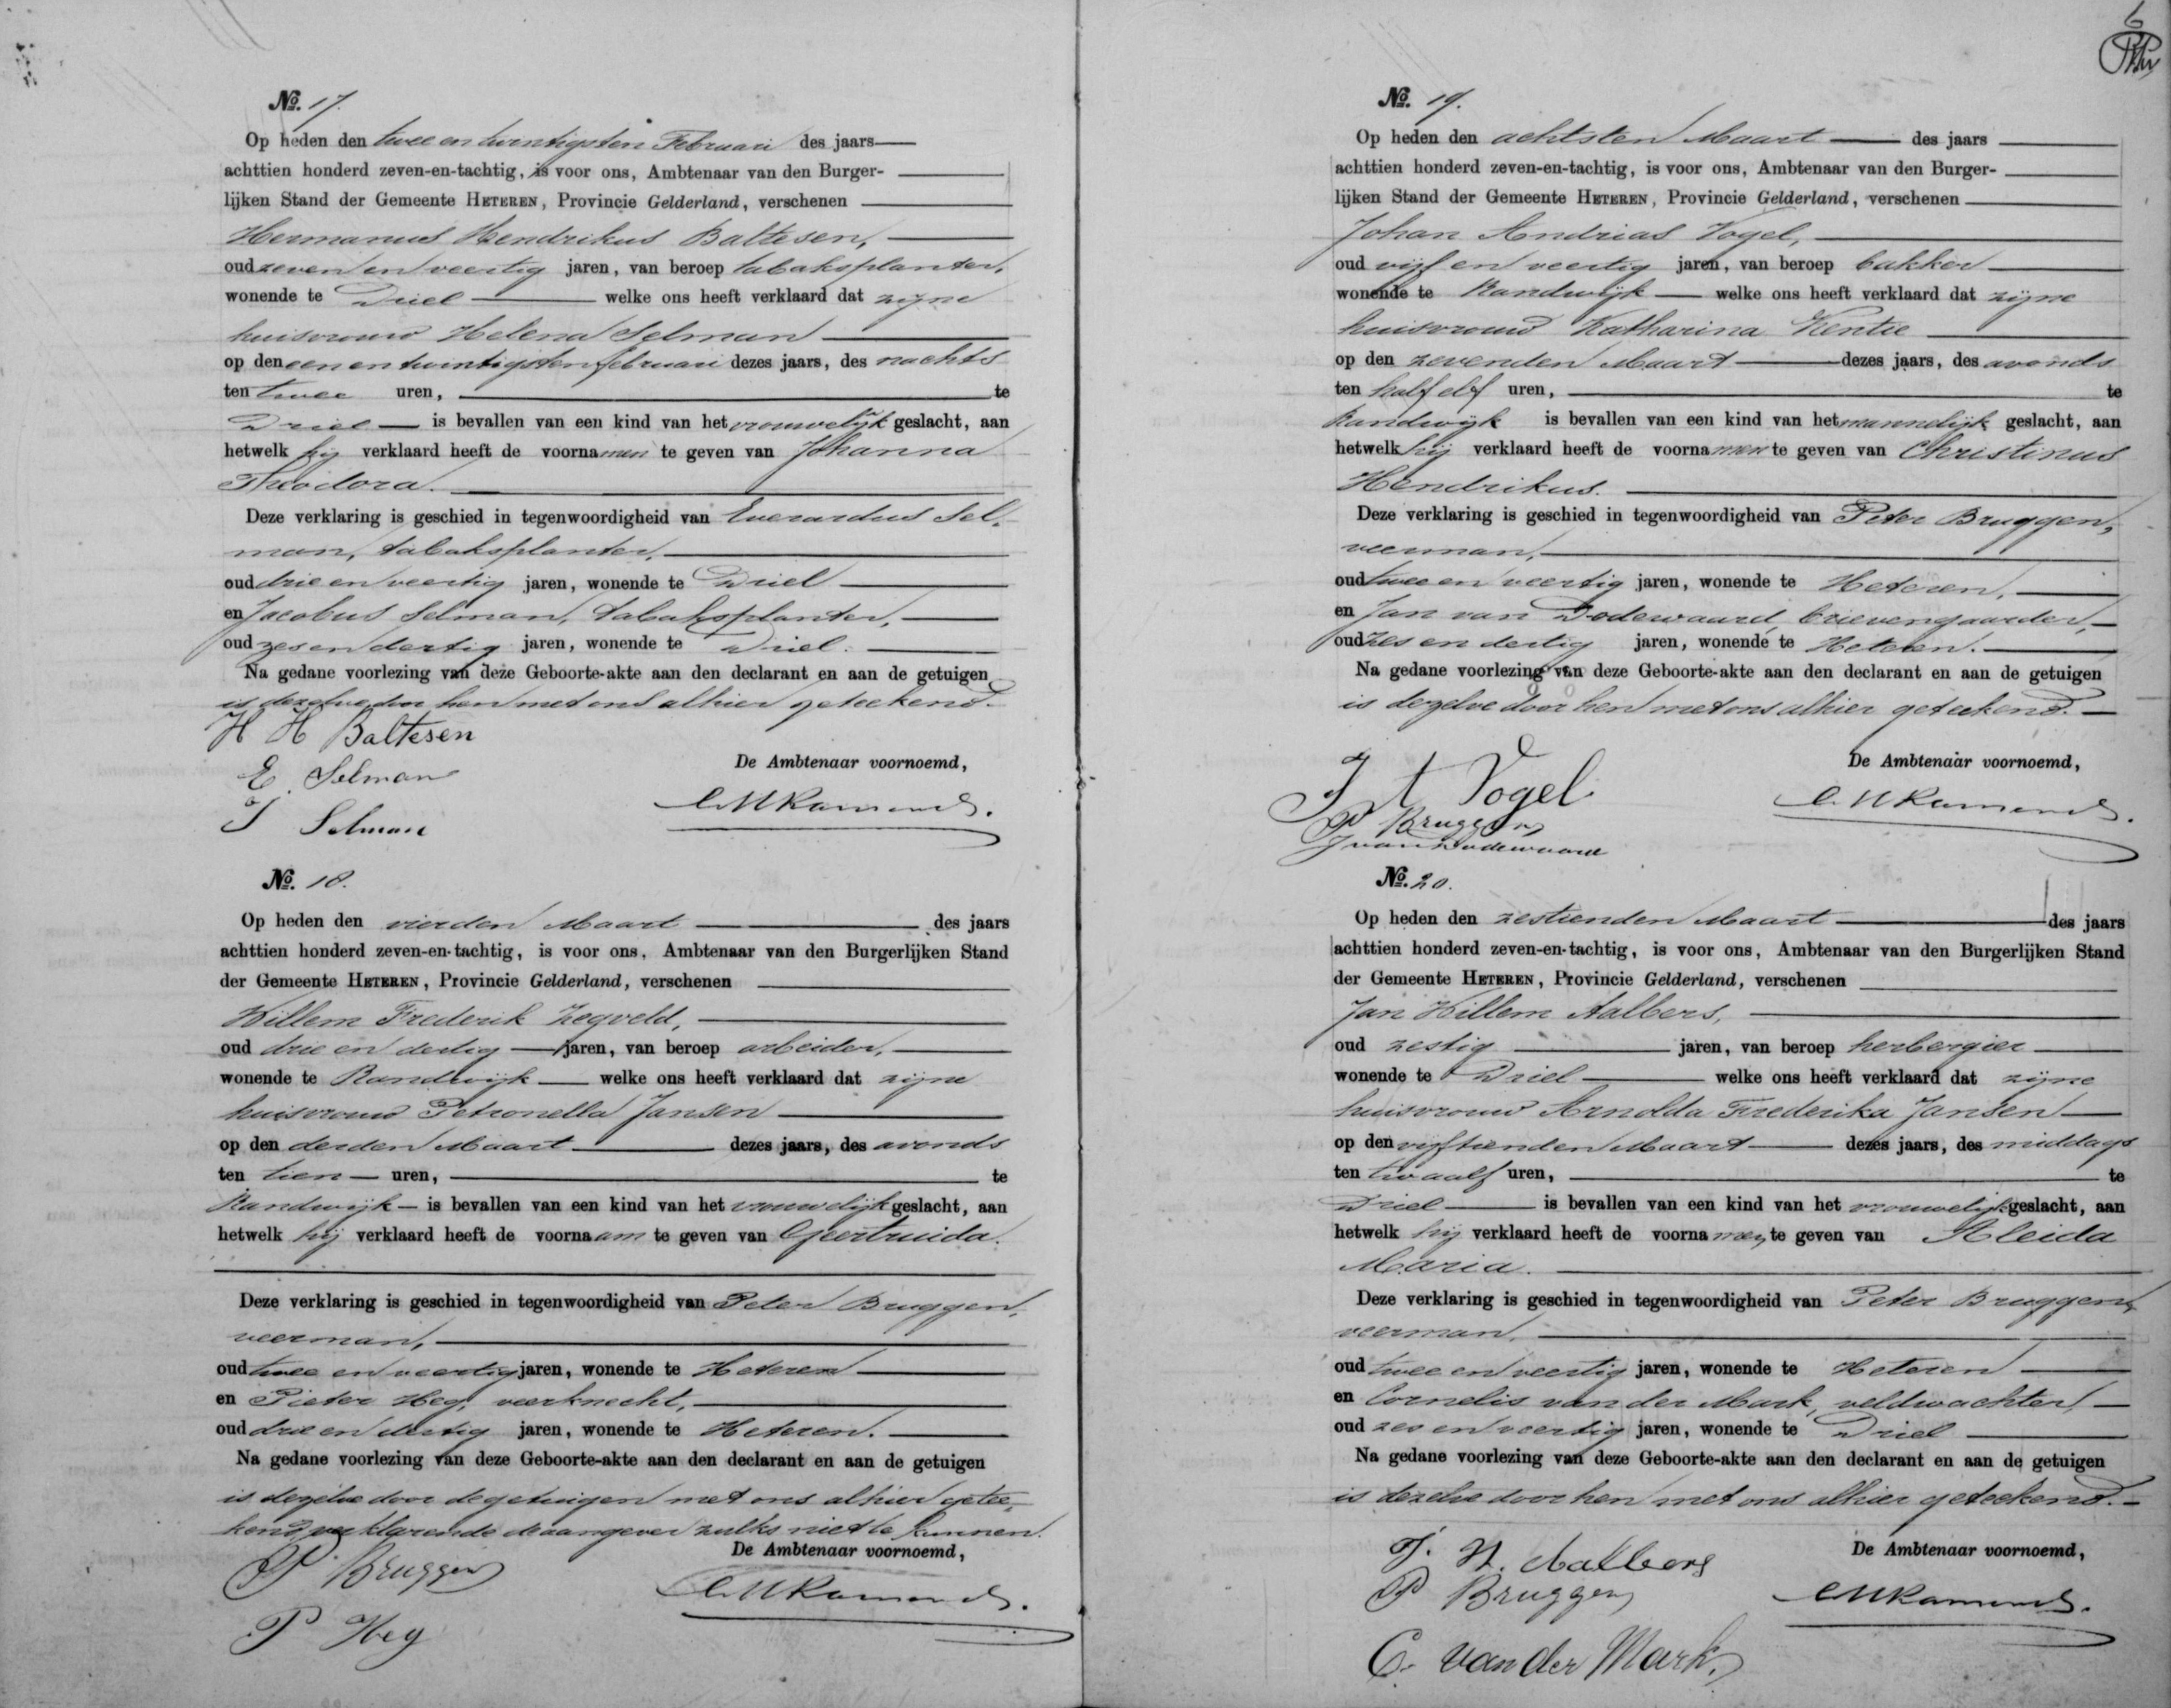 No. 17.
Op heden den twee en twintigsten Februari des jaars
achttien honderd zeven-en-tachtig, is voor ons, Ambtenaar van den Burger-
lijken Stand der Gemeente HETEREN, Provincie Gelderland, verschenen
Hermanus Hendrikus Baltesen,
oud zeven en veertig jaren, van beroep tabaksplanter,
wonende te Driel welke ons heeft verklaard dat zijne
huisvrouw Helena Selman
op den een en twintigsten februari dezes jaars, des nachts
ten twee uren, te
Driel is bevallen van een kind van het vrouwelijk geslacht, aan
hetwelk hij verklaard heeft de voornamen te geven van Johanna
Theodora.
Deze verklaring is geschied in tegenwoordigheid van Everardus Sel-
man, tabaksplanter,
oud drie en veertig jaren, wonende te Driel
en Jacobus Selman, tabaksplanter,
oud zes en dertig jaren, wonende te Driel.
Na gedane voorlezing van deze Geboorte-akte aan den declarant en aan de getuigen
is dezelve door hen met ons alhier geteekend.
H H Baltesen
De Ambtenaar voornoemd,
E. Selman
J Selman
No. 18.
Op heden den vierden Maart des jaars
achttien honderd zeven-en-tachtig, is voor ons, Ambtenaar van den Burgerlijken Stand
der Gemeente HETEREN, Provincie Gelderland, verschenen
Willem Frederik Zegveld,
oud drie en dertig jaren, van beroep arbeider,
wonende te Randwijk welke ons heeft verklaard dat zijne
huisvrouw Petronella Jansen
op den derden Maart dezes jaars, des avonds
ten tien uren, te
Randwijk is bevallen van een kind van het vrouwelijk geslacht, aan
hetwelk hij verklaard heeft de voornaam te geven van Geertruida.
Deze verklaring is geschied in tegenwoordigheid van Peter Bruggen,
veerman,
oud twee en veertig jaren, wonende te Heteren
en Pieter Heg, veerknecht,
oud drie en dertig jaren, wonende te Heteren.
Na gedane voorlezing van deze Geboorte-akte aan den declarant en aan de getuigen
is dezelve door de getuigen met ons alhier getee-
kend, verklarende de aangever zulks niet te kunnen.
De Ambtenaar voornoemd,
P. Bruggen
P Heg
6
No. 19.
Op heden den achtsten Maart des jaars
achttien honderd zeven-en-tachtig, is voor ons, Ambtenaar van den Burger-
lijken Stand der Gemeente HETEREN, Provincie Gelderland, verschenen
Johan Andrias Vogel,
oud vijf en veertig jaren, van beroep bakker
wonende te Randwijk welke ons heeft verklaard dat zijne
huisvrouw Katharina Kentie
op den zevenden Maart dezes jaars, des avonds
ten half elf uren, te
Randwijk is bevallen van een kind van het mannelijk geslacht, aan
hetwelk hij verklaard heeft de voornamen te geven van Christinus
Hendrikus.
Deze verklaring is geschied in tegenwoordigheid van Peter Bruggen,
veerman,
oud twee en veertig jaren, wonende te Heteren,
en Jan van Dodewaard, brievengaarder,
oud zes en dertig jaren, wonende te Heteren.
Na gedane voorlezing van deze Geboorte-akte aan den declarant en aan de getuigen
is dezelve door hen met ons alhier geteekend.
De Ambtenaar voornoemd,
J A Vogel
P Bruggen
J van Dodewaard
No. 20.
Op heden den zestienden Maart des jaars
achttien honderd zeven-en-tachtig, is voor ons, Ambtenaar van den Burgerlijken Stand
der Gemeente HETEREN, Provincie Gelderland, verschenen
Jan Willem Aalbers,
oud zestig jaren, van beroep herbergier
wonende te Driel welke ons heeft verklaard dat zijne
huisvrouw Arnolda Frederika Jansen
op den vijftienden Maart dezes jaars, des middags
ten twaalf uren, te
Driel is bevallen van een kind van het vrouwelijk geslacht, aan
hetwelk hij verklaard heeft de voornamen te geven van Aleida
Maria.
Deze verklaring is geschied in tegenwoordigheid van Peter Bruggen,
veerman,
oud twee en veertig jaren, wonende te Heteren
en Cornelis van der Mark, veldwachter
oud zes en veertig jaren, wonende te Driel
Na gedane voorlezing van deze Geboorte-akte aan den declarant en aan de getuigen
is dezelve door hen met ons alhier geteekend.
J. W. Aalbers
De Ambtenaar voornoemd,
P Bruggen
C. van der Mark.